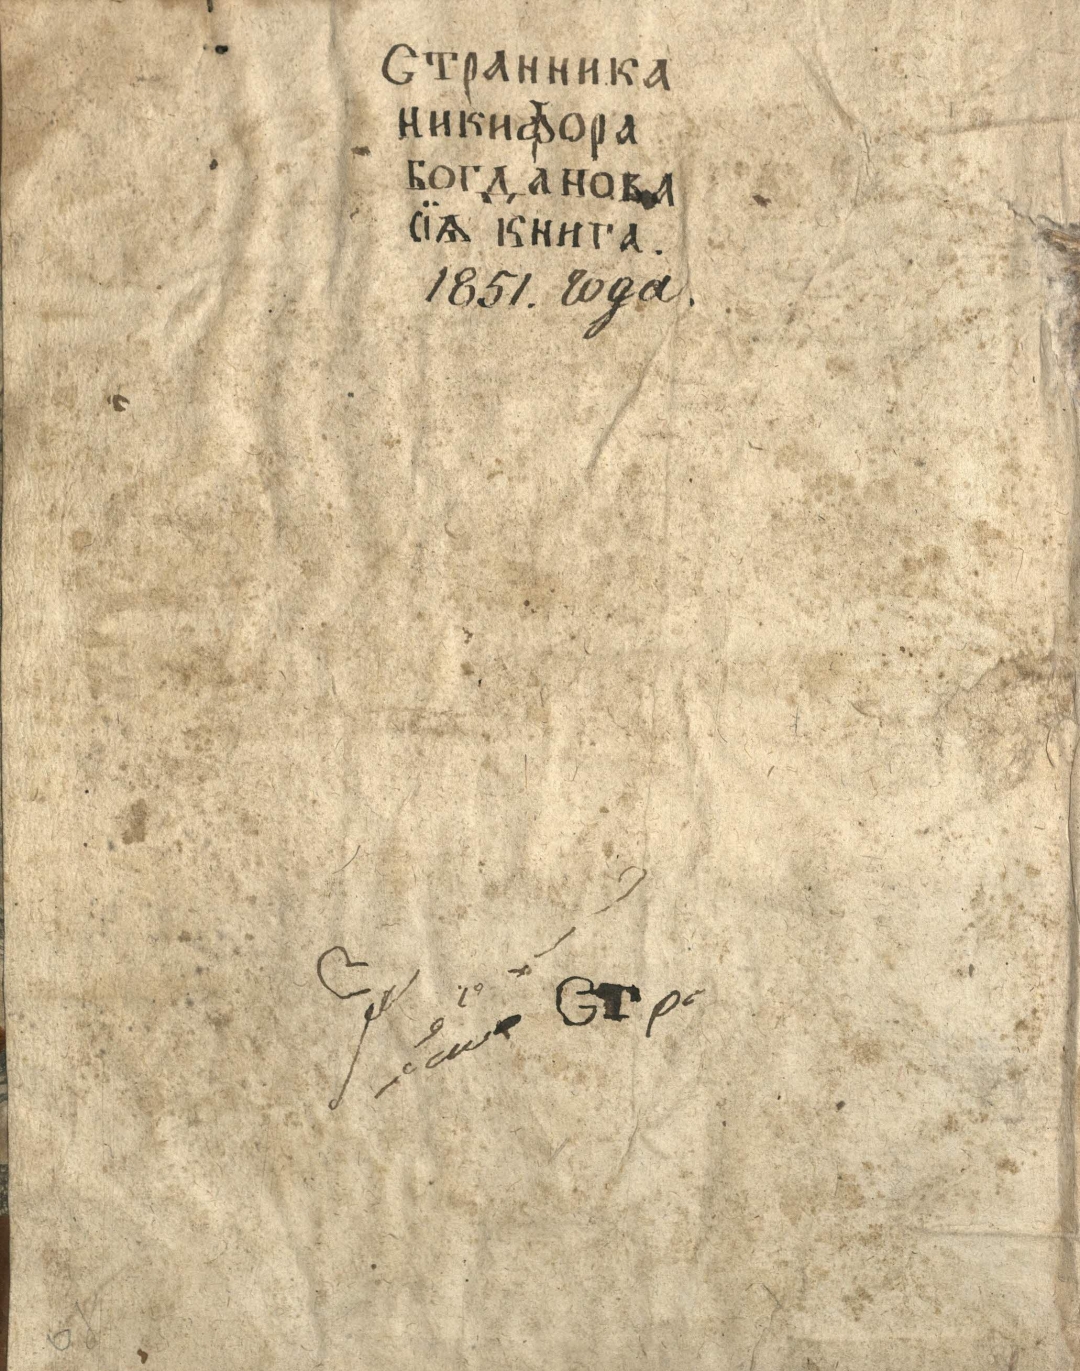 Странника
никифора
Богданова
сїѧ книга.
1851. года.
Стра